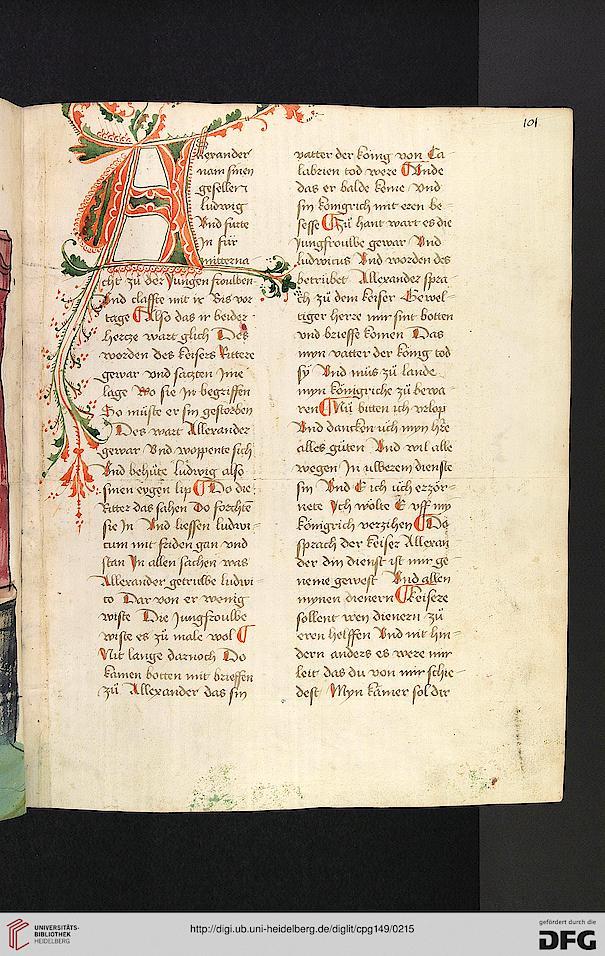 101
Alexander
nam sinen
gesellen
ludwig
Vnd furte
In für
mitterna
cht zü der Jungen froulben
Vnd claffte mit ir Bis vor
tage Also das ir beider
hertze wart glich Des
worden des keisers Rittere
gewar vnd satzten Ime
lage Wo sie In begriffen
So müste er sin gestorben
Des wart Allexander
gewar Vnd woppente sich
Vnd behüte ludwig also
sinen eygen lip Do die
Ritter das sahen Do forchte
sie In Vnd liessen ludwi
cum mit friden gan vnd
stan In allen sachen was
Allexander getruwe ludwi
co Dar von er wenig
wiste Die Jungfroulbe
wiste es zü male wol
Nit lange darnoch Do
kamen botten mit brieffen
zü Allexander das sin
vatter der könig von Ca
labrien tod were Vnde
das er balde keme vnd
sin konigrich mit eren be
sesse Zü hant wart es die
Jungfroulbe gewar Vnd
ludwicus Vnd worden des
betrübet Allexander spra
ch zü dem keiser Gewol
tiger herre mir sint botten
vnd brieffe komen Das
myn vatter der könig tod
sy Vnd müs zü lande
myn königriche zü bewa
ren Nü bitten ich vrlop
Vnd dancken üch myn hre
alles güten Vnd wil alle
wegen In ulberem dienste
sin Vnd E ich üch erzör
nete Ich wolte E vff my
königrich verzihen Do
sprach der keiser Allexan
der din dienst ist mir ge
neme gewest Vnd allen
mynen dienern keisere
sollent iren dienern zü
eren helffen Vnd nit hin
dern anders es were mir
leit das du von mir schie
dest Myn kamer sol dir
UNIVERSITÄTS-
BIBLIOTHEK
HEIDELBERG
http://digi.ub.uni-heidelberg.de/diglit/cpg149/0215
gefördert durch die
DFG